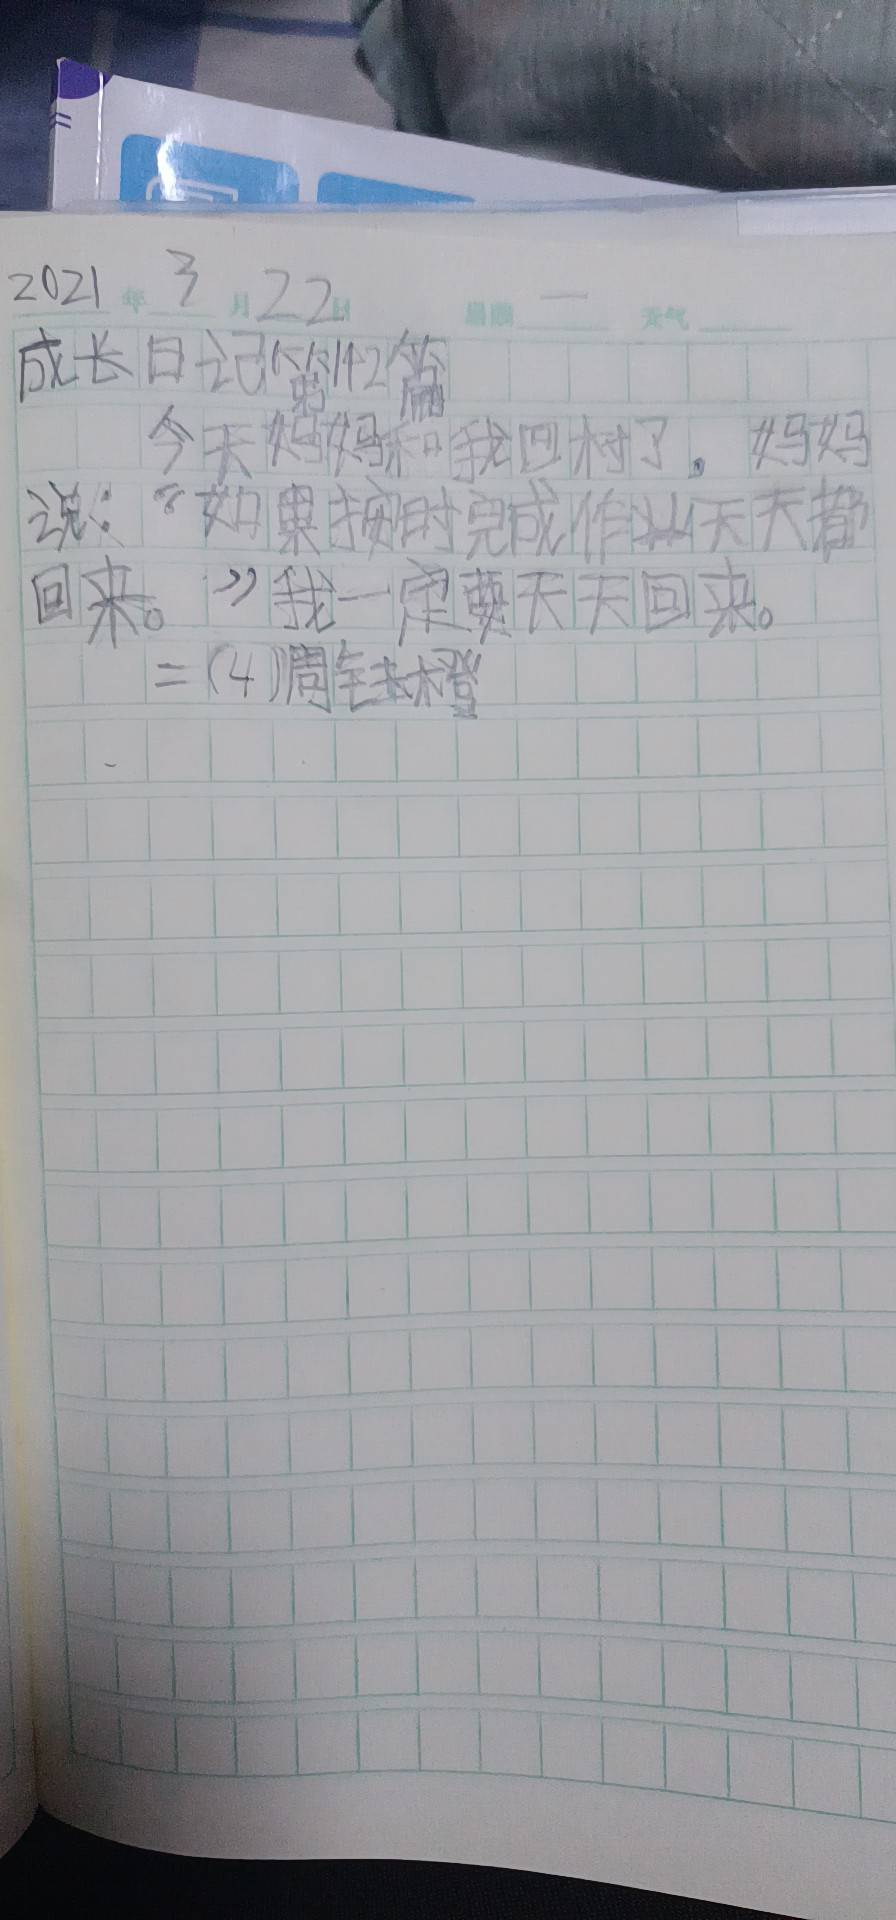 2021年3月22日 星期一 天气
成长日记第142篇
今天妈妈和我回村了。妈妈
说：“如果按时完成作业天天都
回来。”我一定要天天回来。
二(4)周钰橙